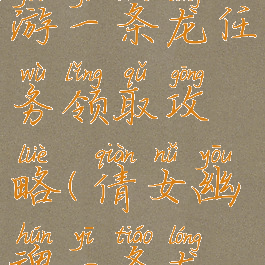 游一条龙任
wù lǐng qǔ gōng
务领取攻
lüè qiàn nǚ yōu
略(倩女幽
hún yī tiáo lóng
魂一条龙